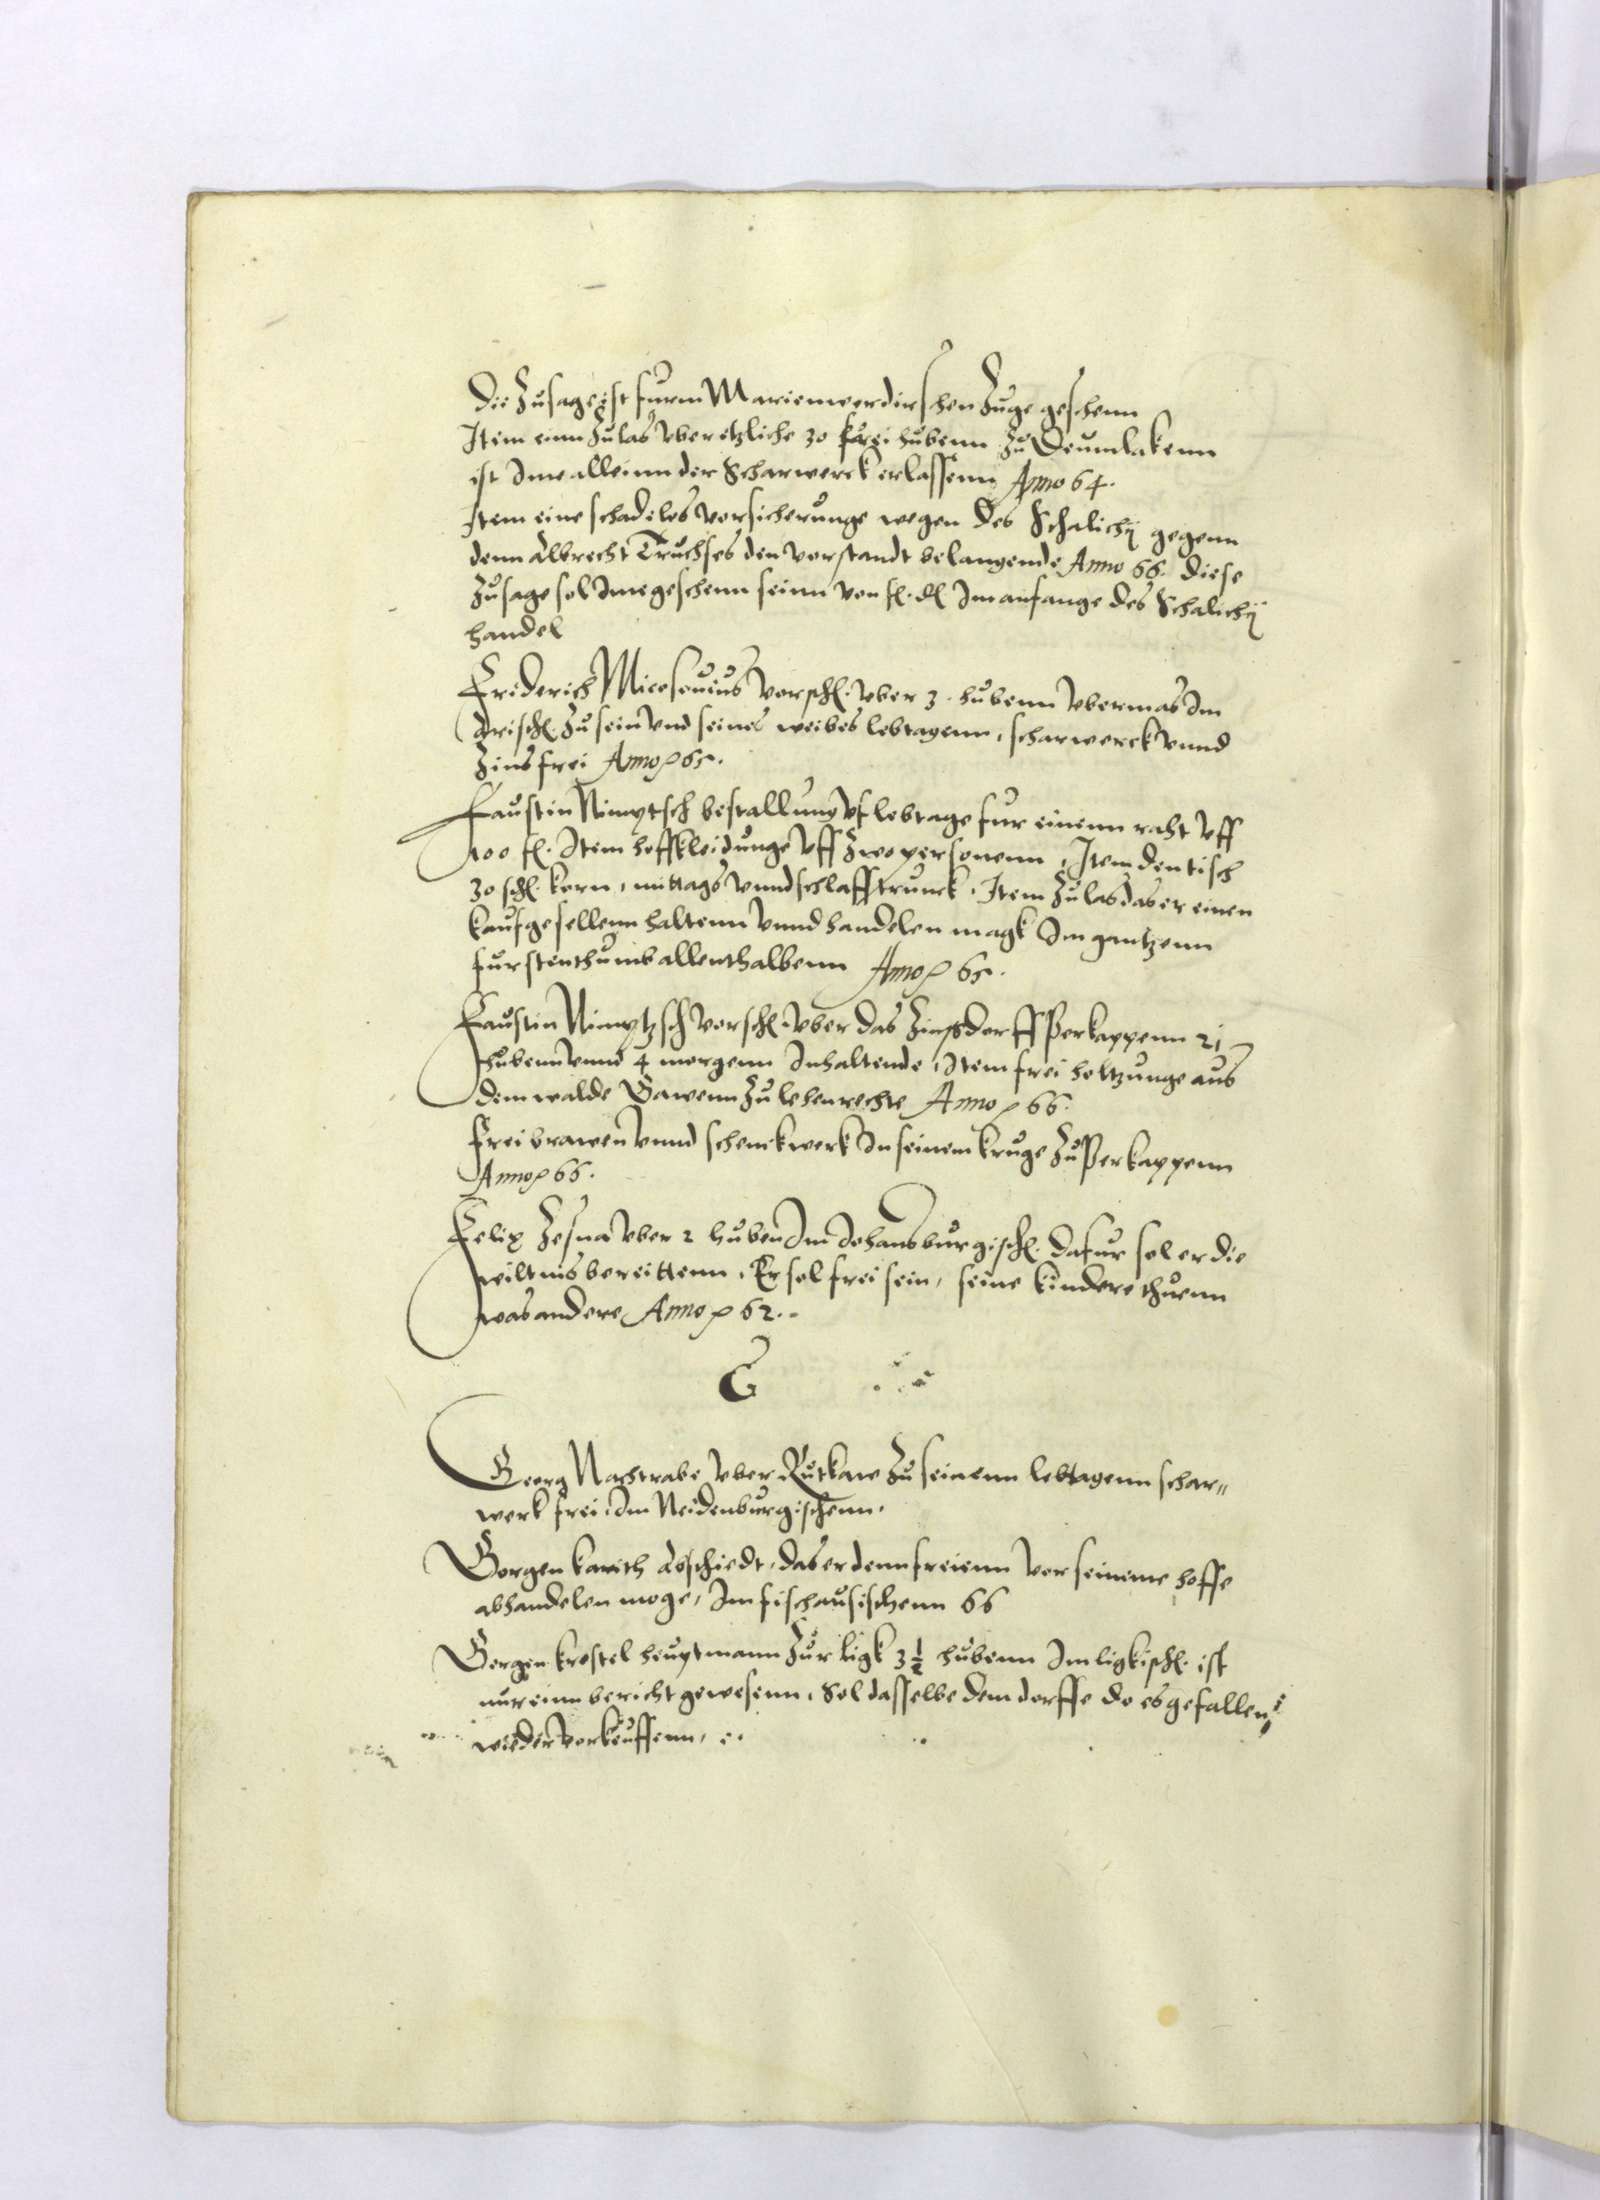 Die Zusage ist furm Marienwerdirschen Zuge geschenn
Item einn Zulas vber etzliche 30 frei hubenn zu Deumlakenn
ist Ime alleinn der Scharwerck erlassenn Anno 64.
Item eine schadelos vorsicherunge wegen des Schalichij gegenn
denn Albrecht Truchses den vorstandt belangende Anno 66. diese
Zusage sol Ime geschenn seinn von f. d. Im anfange des Schalichij
handel
Friderich vorsch. vber 3. hubenn vbermas Im
zu sein vnd seines weibes lebtagenn, scharwerck vnnd
Zins frei Anno 65.
Faustin Nimptsch bestallung vf lebtage fur einenn raht vff
100 fl. Item hoffkleidunge vff zwo personenn, Item den tisch
30 sch. korn, mittags vnnd schlafftrunck. Item Zulas das er einen
kaufgesellenn haltenn vnnd handelen magk Im gantzenn
furstenthumb allenthalbenn Anno 65.
Faustin Nimptzsch vorsch. vber das Zinsdorff Perkappenn 21
hubenn vnnd 4 morgenn Inhaltende, Item frei holtzunge aus
dem walde zu lehenrechte Anno 66.
Frei brawen vnnd schenckwerk In seinem kruge zu Perkappenn
Anno 66.
Felix Zesna vber 2 huben Im Johansburgisch. dafur sol er die
wiltnis bereittenn, Er sol frei sein, seine kindere thuenn
was andere Anno 62.
G
Georg Nachtrabe vber Rutkaw zu seinenn lebtagenn schar„
werk frei, Im Neidenburgischenn.
Gorgen karith abschiedt, das er denn freienn vor seineme hoffe
abhandelen moge, Im fischausischenn 66
Gorgen krostel heuptmann zur ligk 3½ hubenn Im ligkisch. ist
nur einn bericht gewesenn, Sol dasselbe dem dorffe do es gefallen
wieder vorkeuffenn,